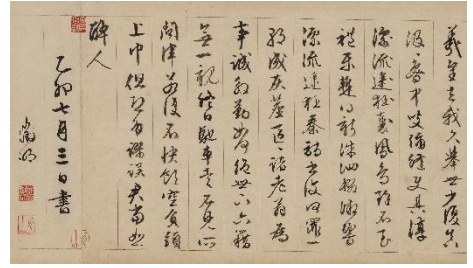 羲皇去我久舉世少復真
汲汲魯中叟彌縫使其淳
漂流逮狂秦鳳鳥雖不至
禮樂暫得新洙泗輟微響
漂流逮狂秦詩書復何罪一
朝成灰塵區區諸老翁為
事誠殷勤如何絕世下六籍
無一親終日馳車走不見所
問津若復不快飲空負頭
上巾但恨多謬誤君當恕
醉人
乙卯七月三日書
徵明